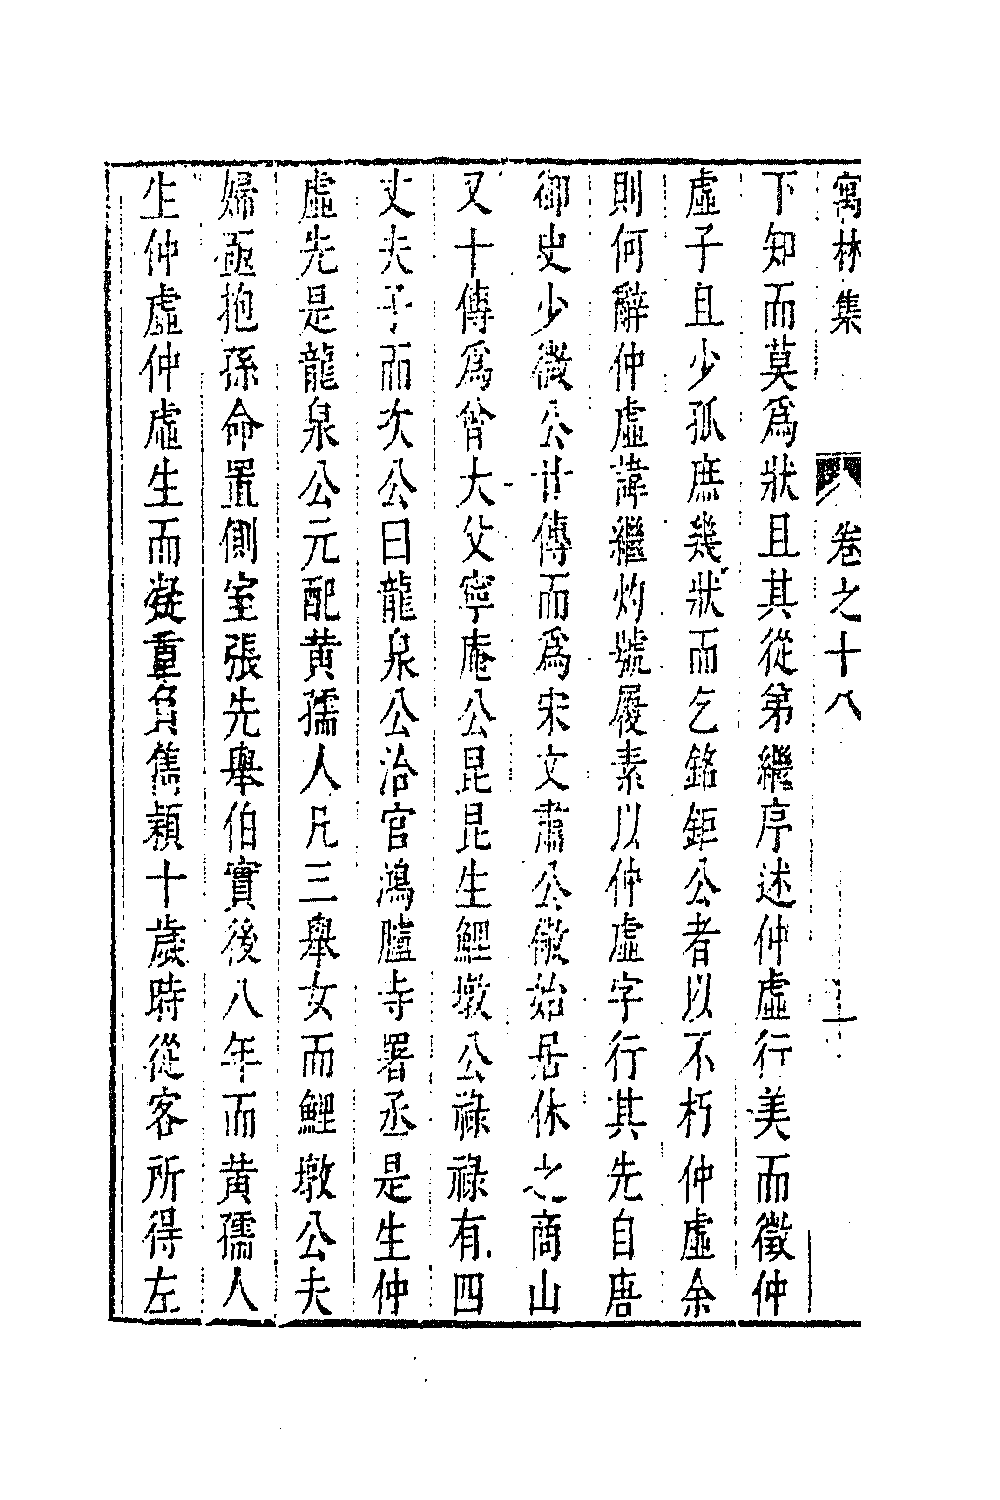 寓林集 卷之十八 二
下知而莫為狀且其從第繼序述仲虛行美而徵仲
虛子且少孤庶幾狀而乞銘鉅公者以不朽仲虛余
則何辭仲虛諱繼灼號履素以仲虛字行其先自唐
御史少微公廿傳而為宋文肅公儆始居休之商山
又十傳爲曾大父寧庵公昆昆生鯉墩公祿祿有四
丈夫子而次公曰龍泉公治官鴻臚寺署丞是生仲
虛先是龍泉公元配黄孺人凡三舉女而鯉墩公夫
婦亟抱孫命置側室張先舉伯實後八年而黄孺人
生仲虛仲虛生而凝重負雋穎十歲時從客所得左